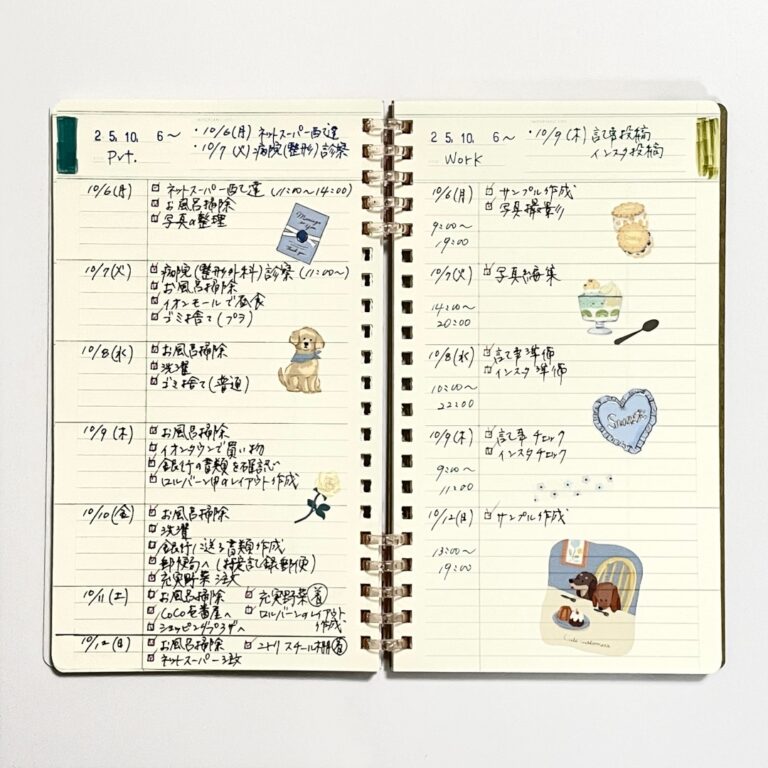 25.10. 6〜
・10/6(月) ネットスーパー配達
Pvt.
・10/7(火)病院(整形)診察
10/6(月)
ネットスーパー配達 (11:00〜14:00)
お風呂掃除
写真の整理
10/7(火)
病院(整形外科)診察 (11:00〜)
お風呂掃除
イオンモールで昼食
ゴミ捨て(プラ)
10/8(水)
お風呂掃除
洗濯
ゴミ捨て(普通)
10/9(木)
お風呂掃除
イオンタウンで買い物
銀行の書類を確認
ロルバーン中のレイアウト作成
10/10(金)
お風呂掃除
洗濯
銀行に送る書類作成
郵便局へ (
充実野菜 注文
10/11(土)
お風呂掃除
充実野菜 着
CoCo壱番屋へ
ロルバーンのレイアウト
ショッピングプラザへ
作成
10/12(日)
お風呂掃除
ニトリ スチール棚 着
ネットスーパー注文
25.10. 6〜
・10/9(木)記事投稿
Work
インスタ投稿
10/6(月)
サンプル作成
写真撮影
9:00〜
19:00
10/7(火)
写真編集
14:00〜
20:00
10/8(水)
記事準備
インスタ準備
10:00〜
22:00
10/9(木)
記事チェック
インスタチェック
9:00〜
11:00
10/12(日)
サンプル作成
13:00〜
19:00